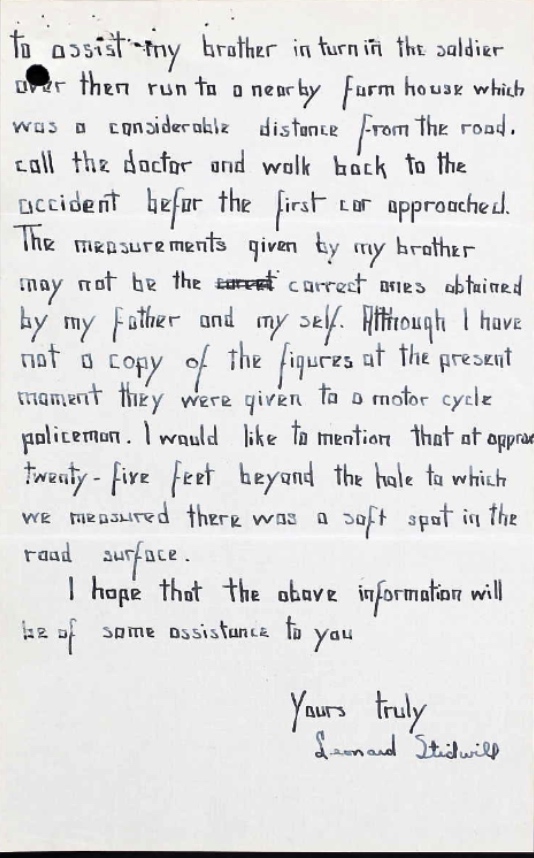 to assist my brother in turnin the soldier
over then run to a nearby farm house which
was a considerable distance from the road.
call the doctor and walk back to the
accident befor the first car approached.
The measurements given by my brother
may not be the correct ones obtained
by my father and my self. Although I have
not a copy of the figures at the present
moment they were given to a motor cycle
policeman. I would like to mention that at approx
twenty-five feet beyond the hole to which
we measured there was a soft spot in the
road surface.
I hope that the above information will
be of some assistance to you
Yours truly
Leonard Stidwill